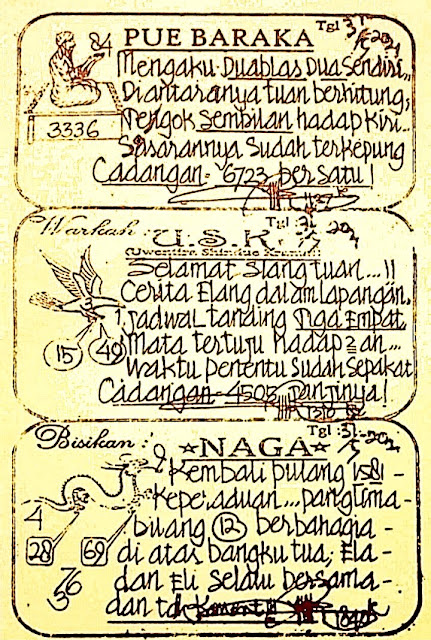 PUE BARAKA
Tgl 31/5-2021
84
3336
Mengaku Duablas Dua Sendiri...
Diantaranya tuan berhitung,
Tengok Sembilan hadap kiri...
Sasarannya Sudah terkepung
Cadangan- 6723 bersatu!
Warkah:
U.S.K.
Tgl : 31/5 2021
Selamat Siang tuan...!!
Cerita Elang dalam lapangan.
Jadwal tanding Tiga Empat
Mata tertuju hadap2an...
Waktu penentu Sudah Sepakat
Cadangan- 4503 Pantinya!
15
49
Bisikan :
☆NAGA☆
Tgl :31/5-2021
Kembali pulang 1581-
Keperaduan... panglima-
bilang 12 berbahagia-
di atas bangku tua; Ela-
dan Eli Selalu bersama-
dan tak
4
28
69
376